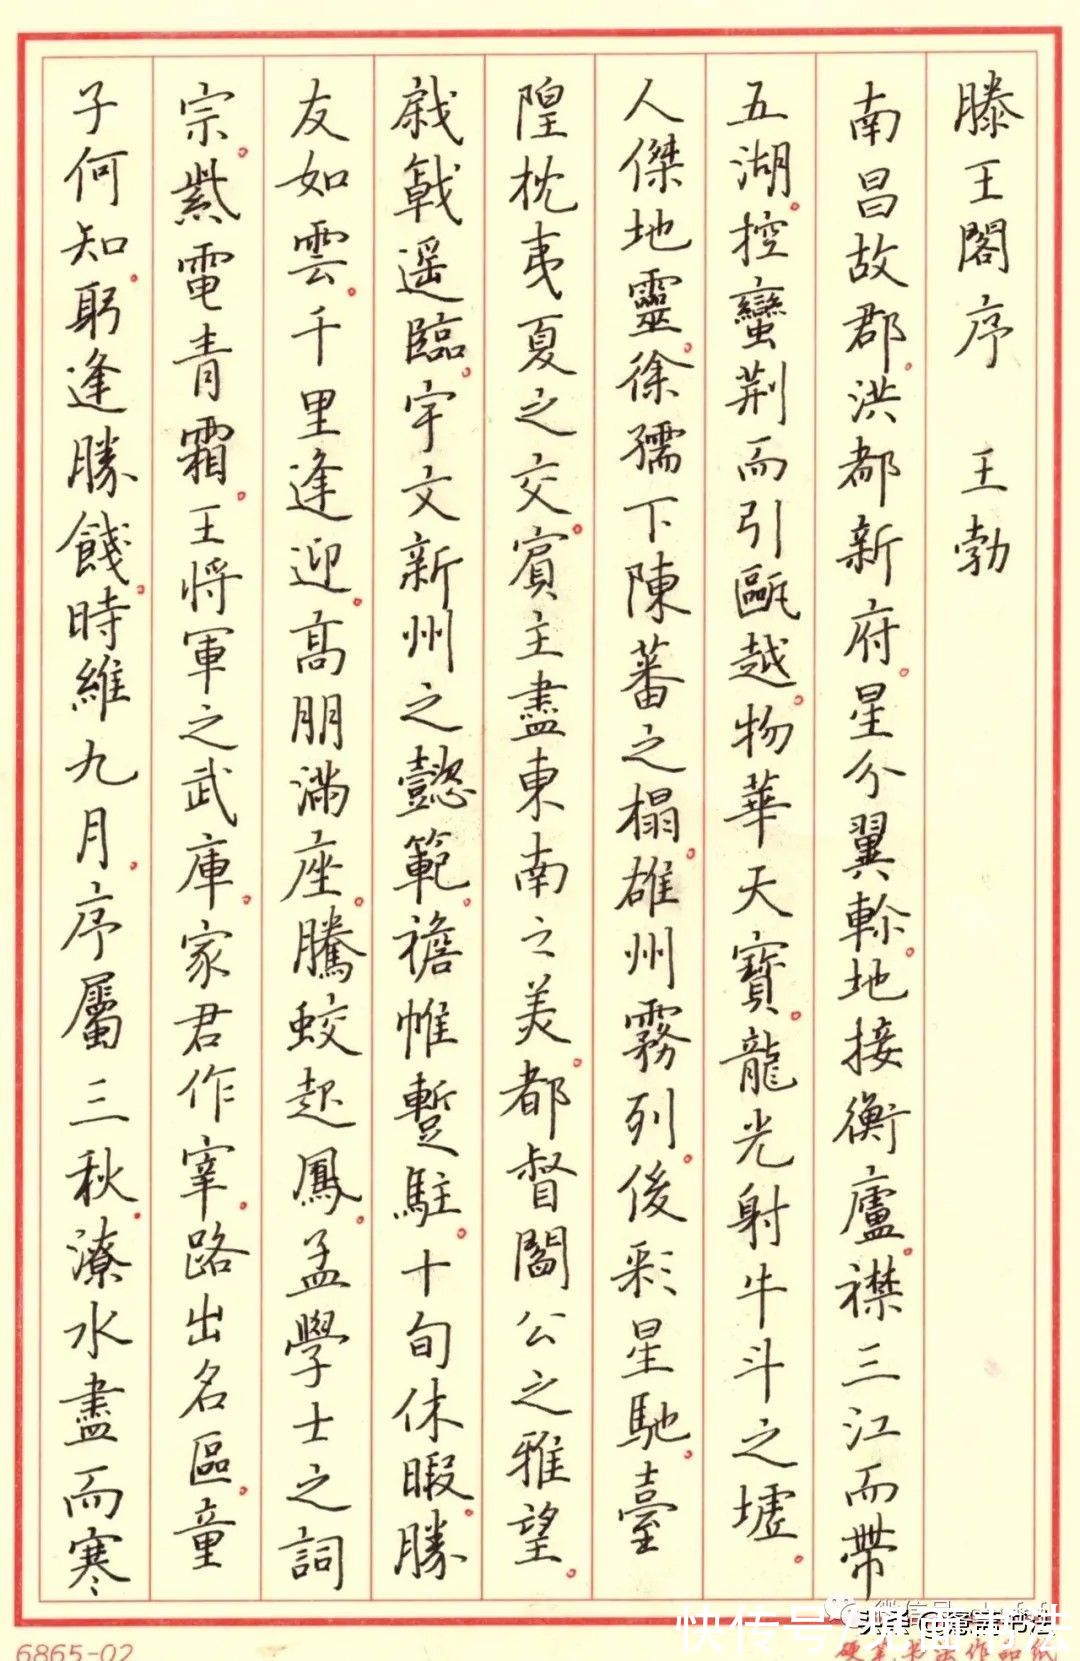 滕王閣序　王勃
南昌故郡。洪都新府。星分翼軫。地接衡廬。襟三江而帶
五湖。控蠻荆而引甌越。物華天寶。龍光射牛斗之墟。
人傑地靈。徐孺下陳蕃之榻。雄州霧列。後彩星馳。臺
隍枕夷夏之交。賓主盡東南之美。都督閻公之雅望。
棨戟遥臨。宇文新州之懿範。襜帷暫駐。十旬休暇。勝
友如雲。千里逢迎。高朋滿座。騰蛟起鳳。孟學士之詞
宗。紫電青霜。王將軍之武庫。家君作宰。路出名區。童
子何知。躬逢勝餞。時維九月。序屬三秋。潦水盡而寒
6865-02
硬笔书法作品纸